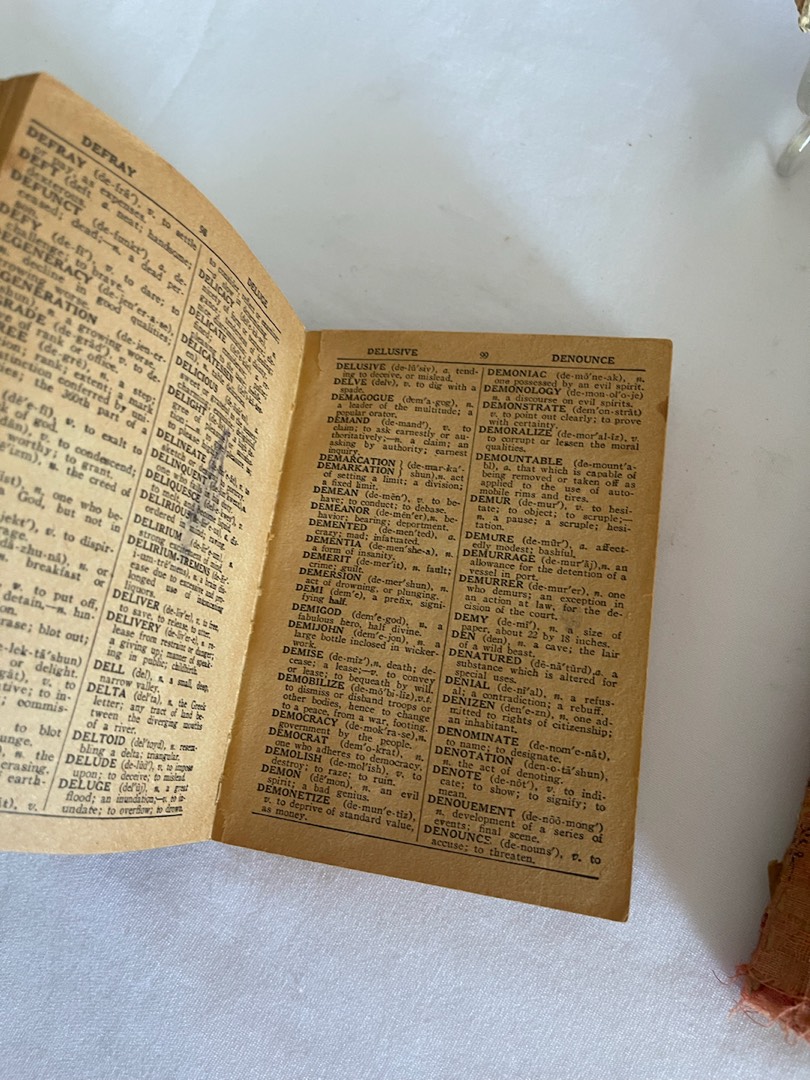 DEFRAY
98
DELUGE
DEFRAY (de-frā'), v. to settle
or pay; as expenses.
DEFT (deft), a. neat; handsome;
dexterous.
DEFUNCT (de-funkt'), a. de-
ceased; dead;—n. a dead per-
son.
DEFY (de-fī'), v. to dare; to
challenge; to brave.
DEGENERACY (de-jen'er-a-se),
n. decline in good qualities;
growing worse.
GENERATION (de-jen-er-
shun), n. a growing worse
of rank or office.
(de-grād'), v. to de-
(de-grē'), n. a step;
tion; rank; extent; a mark
tinction conferred by uni-
ties; the 360th part of a
(dē'e-fī), v. to exalt to
k of god.
dān), v. to condescend;
worthy; to grant.
izm), n. the creed of
ist), n. one who be-
a God, but not in
jekt'), v. to dispir-
rage.
dā-zhu-nā), n. or
breakfast or
v. to put off,
detain,—n. hin-
rase; blot out;
e-lek-tā'shun)
or delight.
gāt), v. to
tive; to in-
commis-
to blot
unge.
n. the
erasing.
earth-
v.
DELICACY
DELICATE
DELICATESSEN
DELICIOUS
DELIGHT
to please
DELINEATE
sketch
DELINQUENT
DELIQUESCE
to melt
DELIRIOUS
ordered in mind
DELIRIUM (de-lir'i-um), n.
strong excitement
DELIRIUM-TREMENS (de-lir'-
i-um-trē'mens), n. a brain dis-
ease due to excessive and pro-
longed use of intoxicating
liquors.
DELIVER (de-liv'er), v. to free,
to save, to release, to utter.
DELIVERY (de-liv'er-e), n. re-
lease from restraint or danger;
a giving up; manner of speak-
ing in public; childbirth.
DELL (del), n. a small, deep,
narrow valley.
DELTA (del'ta), n. the Greek
letter; any tract of land be-
tween the diverging mouths
of a river.
DELTOID (del'toyd), n. resem-
bling a delta; triangular.
DELUDE (de-lūd'), v. to impose
upon; to deceive; to mislead.
DELUGE (del'ūj), n. a great
flood; an inundation;—v. to in-
undate; to overflow; to drown.
DELUSIVE
99
DENOUNCE
DELUSIVE (de-lū'siv), a. tend-
ing to deceive, or mislead.
DELVE (delv), v. to dig with a
spade.
DEMAGOGUE (dem'a-gog), n.
a leader of the multitude; a
popular orator.
DEMAND (de-mand'), v. to
claim; to ask earnestly or au-
thoritatively;—n. a claim; an
asking by authority; earnest
inquiry.
DEMARCATION } (de-mar-ka'-
DEMARKATION } shun), n. act
of setting a limit; a division;
a fixed limit.
DEMEAN (de-mēn'), v. to be-
have; to conduct; to debase.
DEMEANOR (de-mēn'er), n. be-
havior; bearing; deportment.
DEMENTED (de-men'ted), a.
crazy; mad; infatuated.
DEMENTIA (de-men'she-a), n.
a form of insanity.
DEMERIT (de-mer'it), n. fault;
crime; guilt.
DEMERSION (de-mer'shun), n.
act of drowning, or plunging.
DEMI (dem'e), a prefix, signi-
fying half.
DEMIGOD (dem'e-god), n. a
fabulous hero, half divine.
DEMIJOHN (dem'e-jon), n. a
large bottle inclosed in wicker-
work.
DEMISE (de-mīz'), n. death; de-
cease; a lease;—v. to convey
or lease; to bequeath by will.
DEMOBILIZE (de-mō'bi-līz), v.t.
to dismiss or disband troops or
other bodies, hence to change
to a peace, from a war, footing.
DEMOCRACY (de-mok'ra-se), n.
government by the people.
DEMOCRAT (dem'o-krat), n.
one who adheres to democracy.
DEMOLISH (de-mol'ish), v. to
destroy; to raze; to ruin.
DEMON (dē'mon), n. an evil
spirit; a bad genius.
DEMONETIZE (de-mun'e-tīz),
v. to deprive of standard value,
as money.
DEMONIAC (de-mō'ne-ak), n.
one possessed by an evil spirit.
DEMONOLOGY (de-mon-ol'o-je)
n. a discourse on evil spirits.
DEMONSTRATE (dem'on-strāt)
v. to point out clearly; to prove
with certainty.
DEMORALIZE (de-mor'al-īz), v.
to corrupt or lessen the moral
qualities.
DEMOUNTABLE (de-mount'a-
bl), a. that which is capable of
being removed or taken off as
applied to the use of auto-
mobile rims and tires.
DEMUR (de-mur'), v. to hesi-
tate; to object; to scruple;—
n. a pause; a scruple; hesi-
tation.
DEMURE (de-mūr'), a. affect-
edly modest; bashful.
DEMURRAGE (de-mur'āj), n. an
allowance for the detention of a
vessel in port.
DEMURRER (de-mur'er), n. one
who demurs; an exception in
an action at law, for the de-
cision of the court.
DEMY (de-mī'), n. a size of
paper, about 22 by 18 inches.
DEN (den), n. a cave; the lair
of a wild beast.
DENATURED (dē-nā'tūrd), a. a
substance which is altered for
special uses.
DENIAL (de-nī'al), n. a refus-
al; a contradiction; a rebuff.
DENIZEN (den'e-zn), n. one ad-
mitted to rights of citizenship;
an inhabitant.
DENOMINATE (de-nom'e-nāt),
v. to name; to designate.
DENOTATION (den-o-tā'shun),
n. the act of denoting.
DENOTE (de-nōt'), v. to indi-
cate; to show; to signify; to
mean.
DENOUEMENT (de-nōō-mong')
n. development of a series of
events; final scene.
DENOUNCE (de-nouns'), v. to
accuse; to threaten.